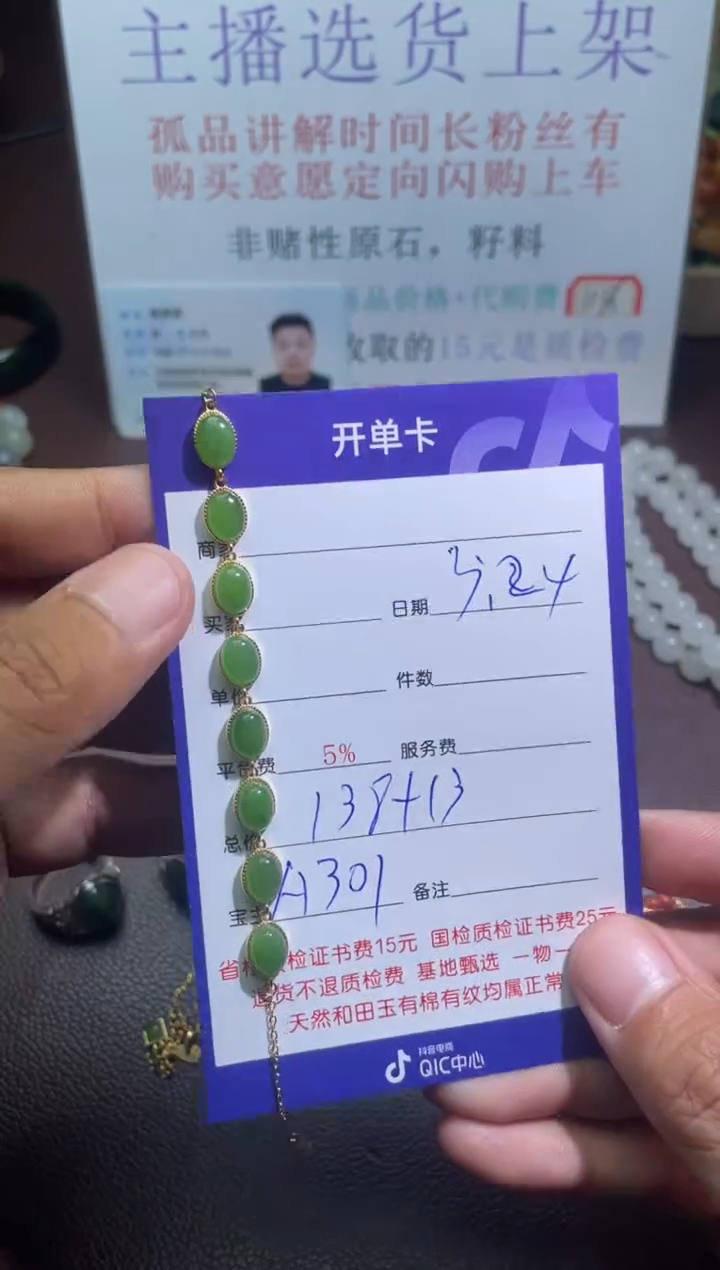 主播选货上架
孤品讲解时间长粉丝有
购买意愿定向闪购上车
非赌性原石，籽料
品价格+代购费
收取的15元是质检费
开单卡
商家
买家 日期 5.24
单价 件数
平台费 5% 服务费
总价 139+13
宝 A301 备注
省检质检证书费15元 国检质检证书费25元
退货不退质检费 基地甄选 一物一
天然和田玉有棉有纹均属正常
抖音电商
QIC中心